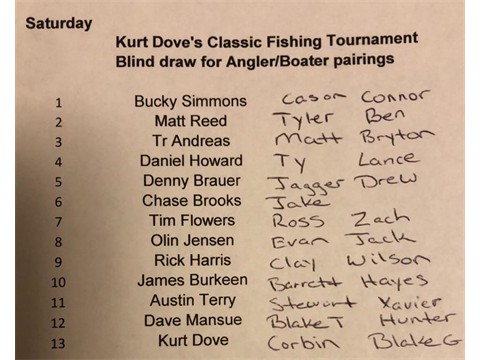 Saturday
Kurt Dove's Classic Fishing Tournament
Blind draw for Angler/Boater pairings
1 Bucky Simmons Cason Connor
2 Matt Reed Tyler Ben
3 Tr Andreas Matt Bryton
4 Daniel Howard Ty Lance
5 Denny Brauer Jagger Drew
6 Chase Brooks Jake
7 Tim Flowers Ross Zach
8 Olin Jensen Evan Jack
9 Rick Harris Clay Wilson
10 James Burkeen Barrett Hayes
11 Austin Terry Stewart Xavier
12 Dave Mansue Blake T Hunter
13 Kurt Dove Corbin Blake G